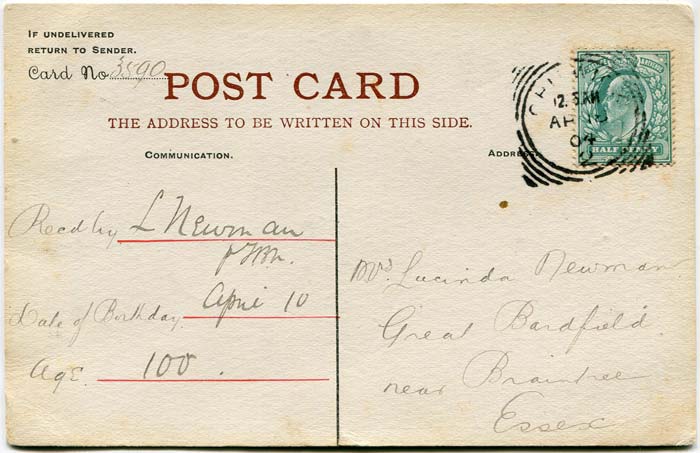 IF UNDELIVERED
RETURN TO SENDER.
Card No 3590
POST CARD
THE ADDRESS TO BE WRITTEN ON THIS SIDE.
COMMUNICATION.
ADDRESS
12.5AM
AP 10
04
HALF PENNY
Recd by L Newman
Date of Birthday April 10
Age 100.
Mrs Lucinda Newman
Great Bardfield
near Braintree
Essex